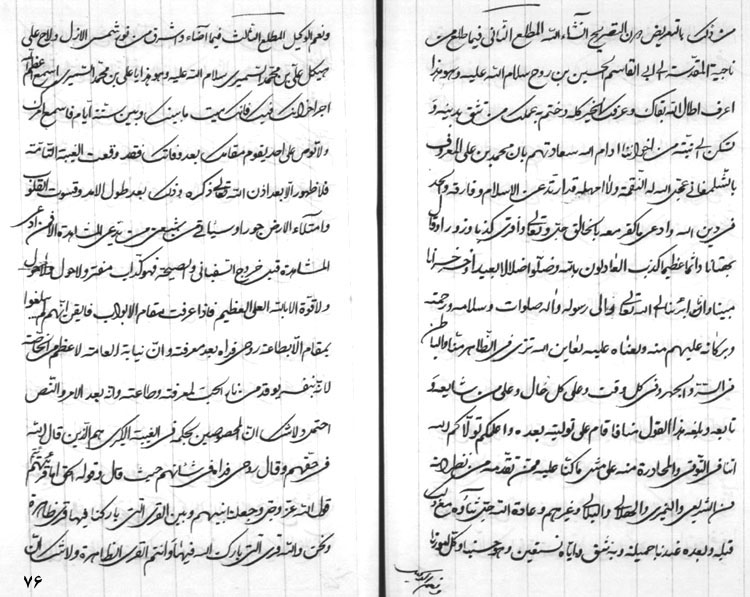 من ذلك بالتعريض دون التصريح انشاء الله المطلع الثانی فیما طلع من
ناحية المقدسة الى ابی القاسم الحسين بن روح سلام الله عليه وهو هذا
اعرف اطال الله بقاك وعرفك الخير كله وختم به عملك من تثق بدينه و
تسكن الى نيته من اخواننا ادام الله سعادتهم بان محمد بن علی المعروف
بالشلمغانی عجل الله له النقمة ولا امهله قد ارتد عن الاسلام وفارقه والحد
فی دين الله وادعى ما كفر معه بالخالق جل وتعالى وافترى كذبا وزورا وقال
بهتانا واثما عظيما كذب العادلون بالله وضلوا ضلالا بعيدا وخسروا خسرانا
مبينا وانا برئنا الى الله تعالى والى رسوله واله صلوات الله وسلامه ورحمته
وبركاته عليهم منه ولعناه عليه لعاين الله تترى فی الظاهر منا والباطن
فی السر والجهر وفی كل وقت وعلى كل حال وعلى من شايعه و
تابعه وبلغه هذا القول منا فاقام على توليته بعده واعلمكم تولاكم الله
اننا فی التوقی والمحاذرة منه على مثل ما كنا عليه ممن تقدمه من نظرائه
من الشريعی والنميری والهلالی والبلالی وغيرهم وعادة الله جل ثناؤه مع ذلك
قبله وبعده عندنا جميلة وبه نثق واياه نستعين وهو حسبنا فی كل امورنا
ونعم الوكيل المطلع الثالث فیما اضاء وشرق من نور شمس الازل ولاح على
هيكل علی بن محمد السمری سلام الله عليه وهو هذا يا علی بن محمد السمری اسمع اعظم الله
اجر اخوانك فيك فانك ميت ما بينك وبين ستة ايام فاجمع امرك
ولا توص على احد يقوم مقامك بعد وفاتك فقد وقعت الغيبة التامة
فلا ظهور الا بعد اذن الله تعالى ذكره وذلك بعد طول الامد وقسوت القلوب
وامتلاء الارض جورا وسيأتی من شيعتی من يدعی المشاهدة الا فمن ادعى
المشاهدة قبل خروج السفيانی والصيحة فهو كذاب مفتر ولا حول
ولا قوة الا بالله العلی العظيم فاذا عرفت مقام الابواب فايقن انهم لم يبلغوا
بمقام الا بطاعة روحی فداه بعد معرفته وان نيابة العامة لاعظم من الخاصة
لانه بنفسه يوقد من نار الحب لمعرفته وطاعته وانه بعد الامر والنص
احتمل ولا شك ان المخصوصين بحكمه فی الغيبة الكبرى هم الذين قال الله
فی حقهم وقال روحی فداه فی شانهم حيث قال وقوله الحق اما قرئتم
قول الله عز وجل وجعلنا بينهم وبين القرى التی باركنا فيها قرى ظاهرة
ونحن والله القرى التی بارك الله فيها وانتم القرى الظاهرة ولا شك ان
۷۶